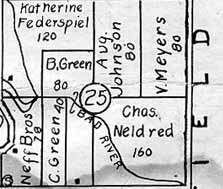 Katherine
Federspiel
120
B. Green
80
Aug.
Johnson
80
V. Meyers
80
25
Neff Bros
78
C. Green 40
BAD RIVER
Chas.
Neldred
160
IELD